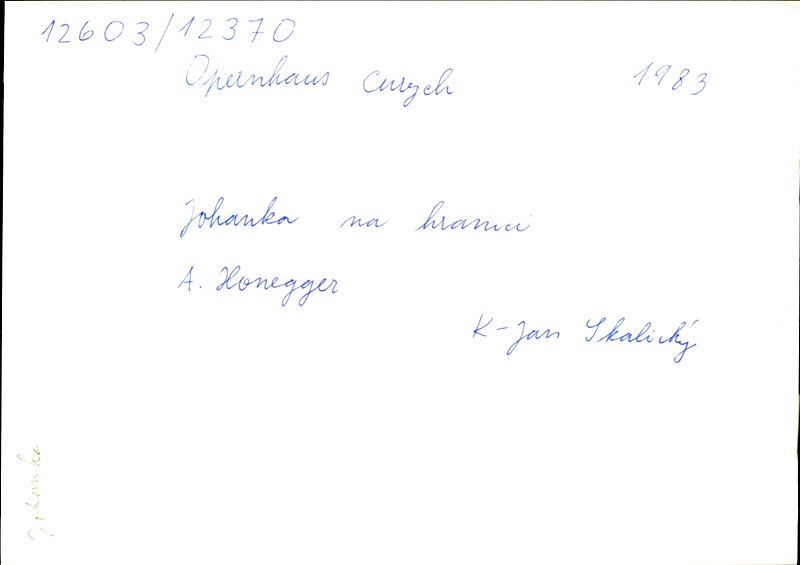 12603/12370
Opernhaus Curych 1983
Johanka na hranici
A. Honegger
K-Jan Skalický
Johanka